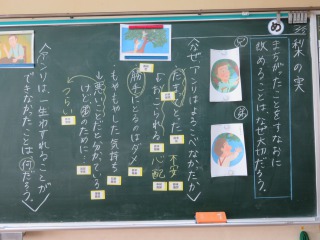 梨の実
め
まちがったことをすなおに
改めることはなぜ大切だろう。
兄
弟
<なぜアンリはまよべなかったか>
だまってとった
おこられる
不安
心配
勝手にとるのはダメ
もやもやした気持ち
悪いことだと分かっている
けど、弟のために…
つらい
<アンリは、一生わすれることが
できなかったことは何だろう。>